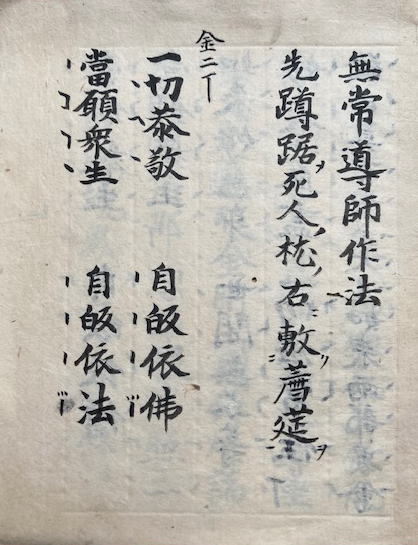 無常導師作法
先蹲踞死人枕右敷薦莚
金二丁
一切恭敬 自皈依佛
當願衆生 自皈依法